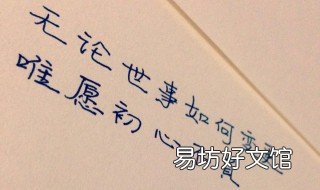 无论世事如何变
唯愿初心
易坊好文馆